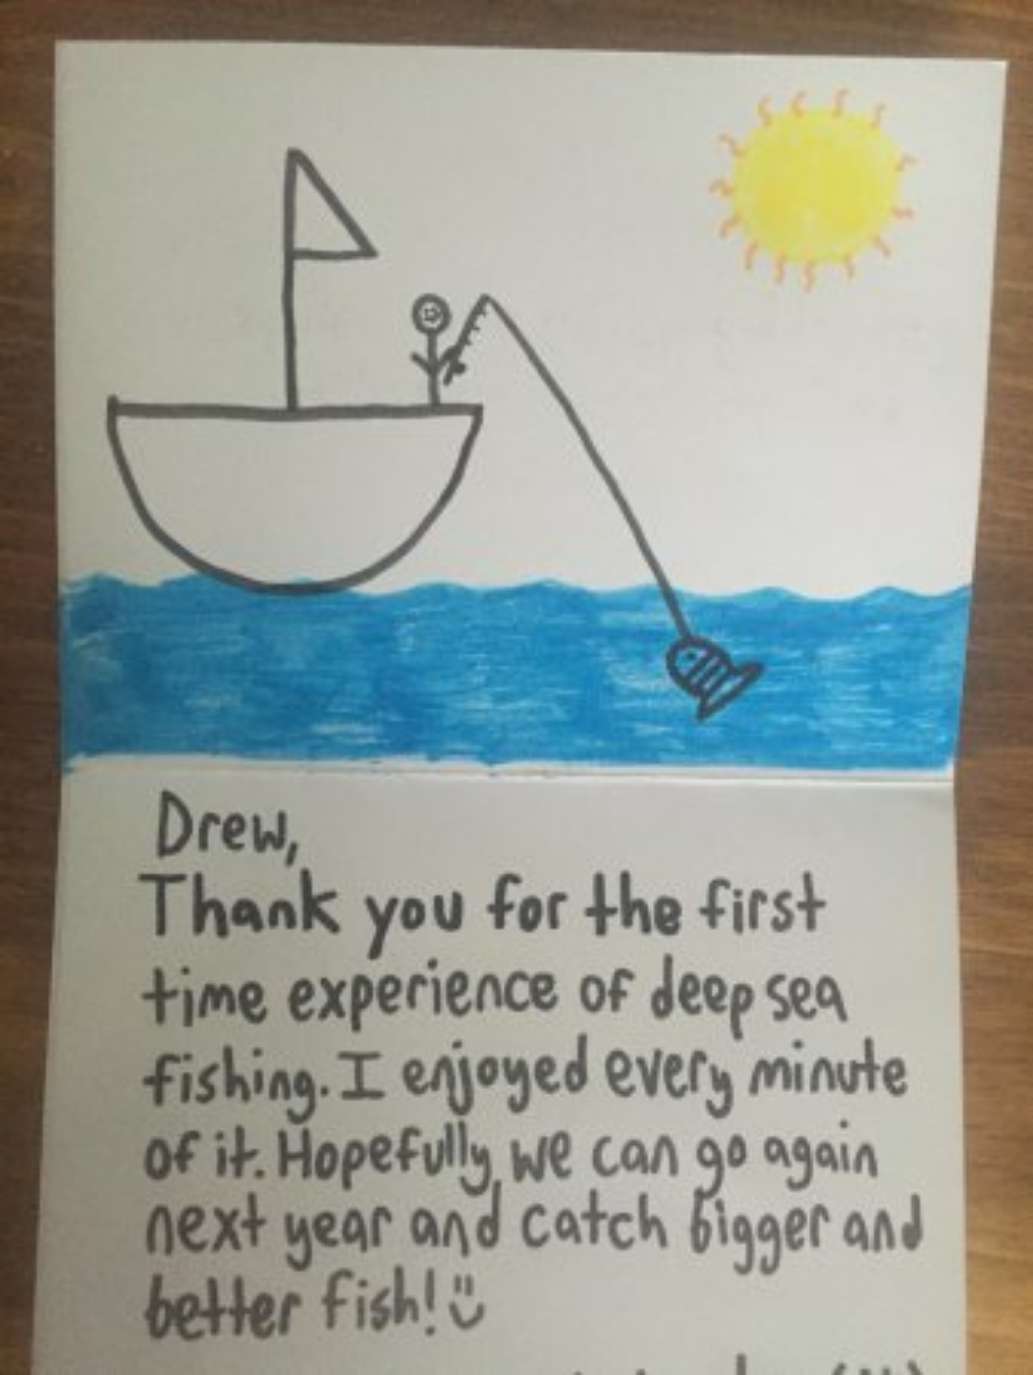 Drew,
Thank you for the first
time experience of deep sea
fishing. I enjoyed every minute
of it. Hopefully, we can go again
next year and catch bigger and
better fish! ü